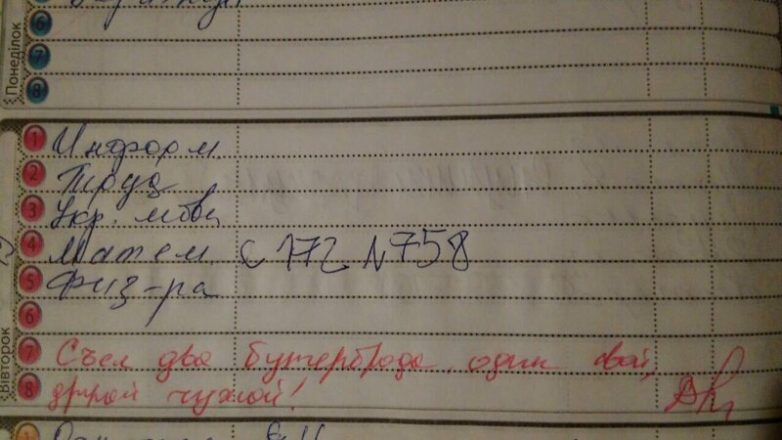 Понеділок
6
7
8
Вівторок
1 Информ.
2 Труд
3 Укр. мова
4 Матем. с 172 N758
5 Физ-ра
6
7 Съел два бутерброда, один свой,
8 другой чужой!